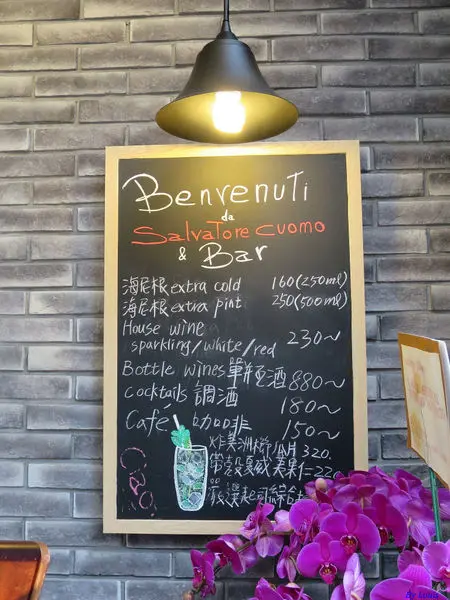 Benvenuti
da
Salvatore cuomo
& Bar
海尼根 extra cold 160(250ml)
海尼根 extra pint 250(500ml)
House wine
sparkling/white/red 230~
Bottle wines 單瓶酒 880~
cocktails 調酒 180~
Cafe 咖啡 150~
炸美洲 片 320.
帶殼夏威夷果仁=22
嚴選起司綜合
By Luna